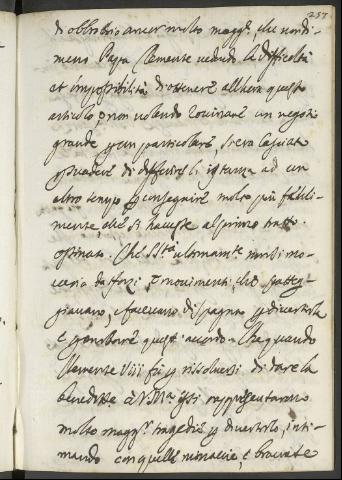 257
di obbrobrio ancor molto maggr, che nondi-
meno Papa Clemente vedendo la difficoltà
et impossibilità d'ottenere allhora questo
articolo, e non volendo rovinare un negotio
grande p un particolare, s'era lasciato
psuadere di differire l'instanza ad un
altro tempo p conseguire molto più facil-
mente, che si havesse al primo tratto
ostinato. Che S Sta ultimamte non si mo-
vesse da sforzi e movimenti, che
giavano, e facevano Spagnoli p divertirla
e quest' accordo. Che quando
Clemente Viii fu p risolversi di dare la
benedittne à S Mtà questi rappresentarono
molto maggri tragedie p divertirlo, inti-
mando con quelle minaccie, e bravate